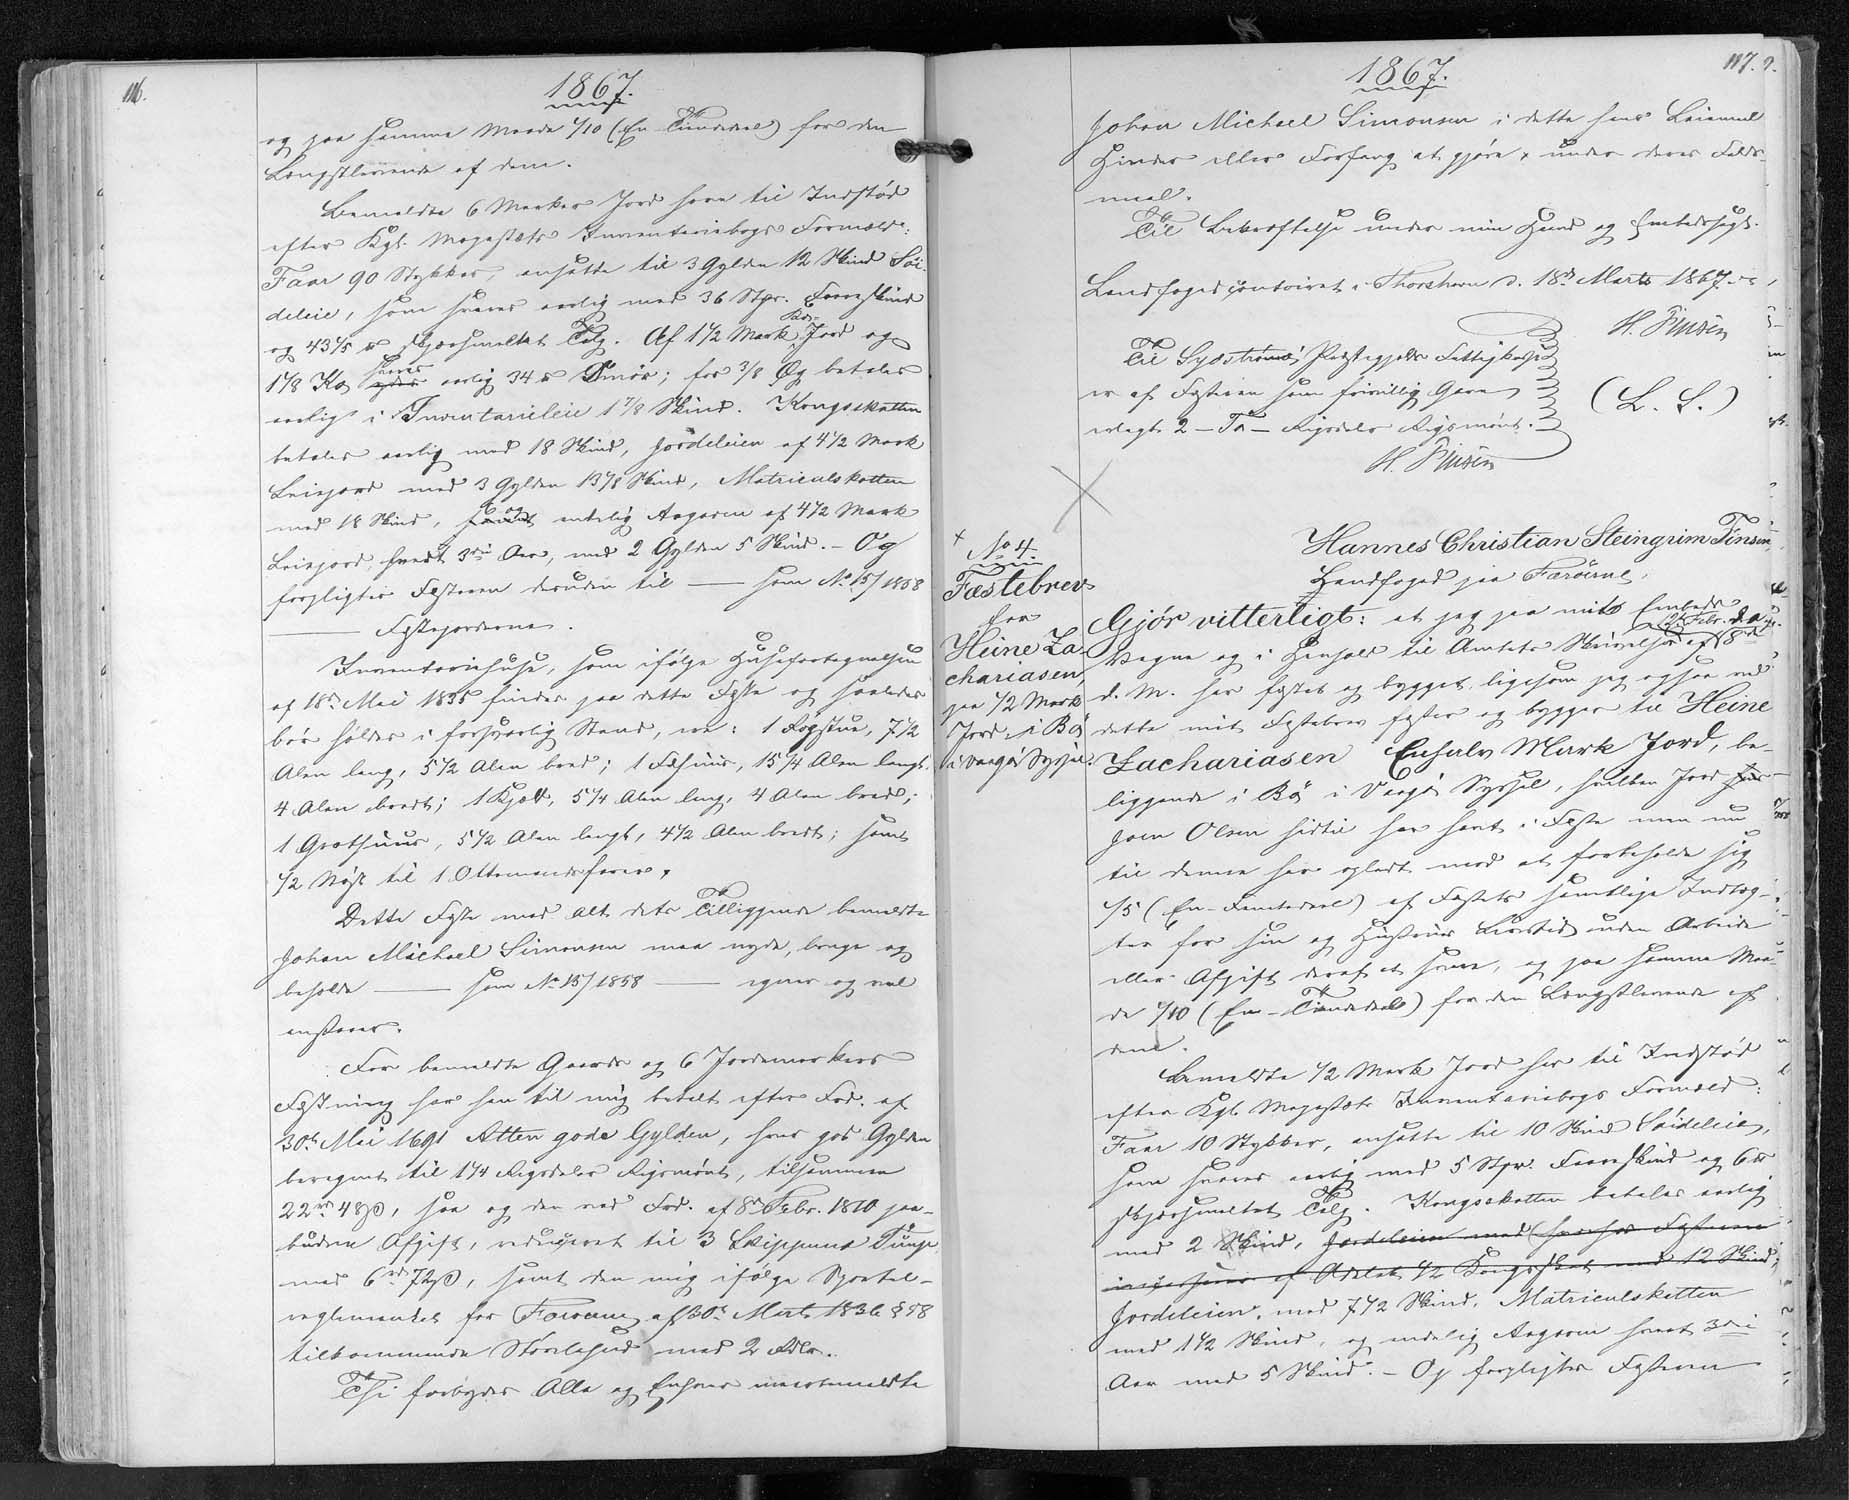 116.
1867.
og paa samme Maade 1/10 (En Tiendedeel) for den
Længstlevende af dem.
Bemeldte 6 Marker Jord have til Indstød
efter Kgl. Majestæts Inventariebogs Formeld:
Faar 90 Stykker, ansatte til 3 Gylden 12 Skind Søi-
deleie, som svares aarlig med 36 Stpr. Faareskind
og 43 1/5 ℔ skjærsmeltet Talg. Af 1 1/2 Mark Ko-Jord og
1 1/8 Ko svares aarlig 34 ℔ Smør; for 3/8 Øg betales
aarligt i Inventarieleie 1 7/8 Skind. Kongsskatten
betales aarlig med 18 Skind, Jordeleien af 4 1/2 Mark
Leiejord med 3 Gylden 13 7/8 Skind, Matriculskatten
med 18 Skind, og endelig Aagaven af 4 1/2 Mark
Leiejord, hvert 3die Aar, med 2 Gylden 5 Skind. - Og
forpligtes Fæsteren desuden til — som No 15/1858
— Fæstejorderne.
Inventariehuse, som ifølge Husefortegnelsen
af 18de Mai 1835 findes paa dette Fæste og saaledes
bør holdes i forsvarlig Stand, ere: 1 Røgstue, 7 1/2
Alen lang, 5 1/2 Alen bred; 1 Fæhuus, 15 1/4 Alen langt,
4 Alen bredt; 1 Hjall, 5 1/4 Alen lang, 4 Alen bred;
1 Grothuus, 5 1/2 Alen langt, 4 1/2 Alen bredt; samt
1/2 Nøst til 1 Ottemandsfarer.
Dette Fæste med alt dets Tilliggende bemeldte
Johan Michael Simonsen maa nyde, bruge og
beholde — som No 15/1858 — egner og vel
anstaaer.
For bemeldte Gaards og 6 Jordemarkers
Fæstning har han til mig betalt efter Frd. af
30te Mai 1691 Atten gode Gylden, hver god Gylden
beregnet til 1 1/4 Rigsdaler Rigsmønt, tilsammen
22 rd 48 ß, saa og den ved Frd. af 8de Febr. 1810 paa-
budne Afgift, reduceret til 3 Skippund Tunge
med 6 rd 72 ß, samt den mig ifølge Sportel-
reglementet for Færøerne af 30te Marts 1836 § 58
tilkommende Storlehud med 2 Rdlr.
Thi forbydes Alle og Enhver meerbemeldte
117.
1867.
Johan Michael Simonsen i dette hans Leiemaal
Hinder eller Forfang at gjøre under deres Falds-
maal.
Til Bekræftelse under min Haand og Embedssegl.
Landfogedcontoiret i Thorshavn d. 18de Marts 1867.
H. Finsen
(L. S.)
Til Sydstrømø Præstegjelds Fattigkasse
er af Fæsteren som frivillig Gave
erlagt 2 - To - Rigsdaler Rigsmønt.
H. Finsen
No 4.
Fæstebrev
for
Heine Za-
chariasen,
paa 1/2 Mark
Jord i Bø
i Vaagø Syssel.
Hannes Christian Steingrim Finsen,
Landfoged paa Færøerne,
Gjør vitterligt: at jeg paa mit Embeds
Vegne og i Henhold til Amtets Skrivelse af
d. M. har fæstet og bygget, ligesom jeg ogsaa ved
dette mit Fæstebrev fæster og bygger til Heine
Zachariasen Enhalv Mark Jord, be-
liggende i Bø i Vaagø Syssel, hvilken Jord
Joen Olsen hidtil har havt i Fæste men nu
til denne har opladt mod at forbeholde sig
1/5 (En Femtedeel) af Fæstets samtlige Indtæg-
ter for sin og Hustrues Livstid uden Arbeide
eller Afgift deraf at svare, og paa samme Maa-
de 1/10 (En Tiendedeel) for den Længstlevende af
dem.
Bemeldte 1/2 Mark Jord har til Indstød
efter Kgl. Majestæts Inventariebogs Formeld:
Faar 10 Stykker, ansatte til 10 Skind Søideleie,
som svares aarlig med 5 Stpr. Faareskind og 6 ℔
skjærsmeltet Talg. Kongsskatten betales aarlig
med 2 Skind, Jordeleien med (hvorfor Fæsteren
af Odelet 1/2 Kongsskat med 12 Skind;
Jordeleien, med 7 1/2 Skind, Matriculskatten
med 1 1/2 Skind, og endelig Aagaven hvert 3die
Aar med 5 Skind. - Og forpligtes Fæsteren